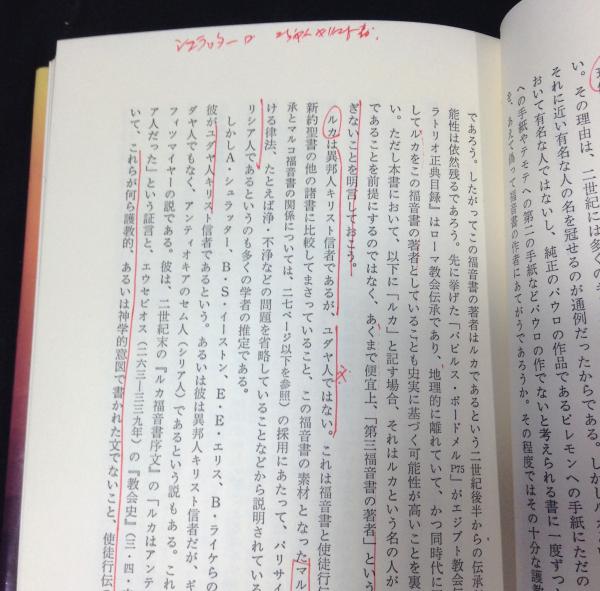 シュラッター
であろう。したがってこの福音書の著者はルカであるという二世紀後半からの伝承
能性は依然残るであろう。先に挙げた「パピルス・ボードメルP75」がエジプト教会
ラトリオ正典目録』はローマ教会伝承であり、地理的に離れていて、かつ同時代に
してルカをこの福音書の著者としていることも史実に基づく可能性が高いことを裏
い。ただし本書において、以下に「ルカ」と記す場合、それはルカという名の人が
であることを前提にするのではなく、あくまで便宜上、「第三福音書の著者」という
ぎないことを明言しておこう。
ルカは異邦人キリスト信者であるが、ユダヤ人ではない。これは福音書と使徒行伝
新約聖書の他の諸書に比較してまさっていること、この福音書の素材となったマル
承とマルコ福音書の関係については、二七ページ以下を参照）の採用にあたって、パリサイ
ける律法、たとえば浄・不浄などの問題を省略していることなどから説明されている
リシア人であるというのも多くの学者の推定である。
しかしA・シュラッター、B・S・イーストン、E・E・エリス、B・ライケらの
彼がユダヤ人キリスト信者であるという。あるいは彼は異邦人キリスト信者だが、ギ
ダヤ人でもなく、アンティオキアのセム人（シリア人）であるという説もある。これ
フィツマイヤーの説である。彼は、二世紀末の『ルカ福音書序文』の「ルカはアンテ
ア人だった」という証言と、エウセビオス（二六三―三三九年）の『教会史』（三・四・
いて、これらが何ら護教的、あるいは神学的意図で書かれた文でないこと、使徒行伝
い。その理由は、二世紀には多くの
それに近い有名な人の名を冠せるのが通例だったからである。しかしルカ
おいて有名な人ではないし、純正のパウロの作品であるピレモンへの手紙にただの
への手紙やテモテへの第二の手紙などパウロの作でないと考えられる書に一度ずつ
を、あえて偽って福音書の作者にあてがうであろうか。その程度ではその十分な護教